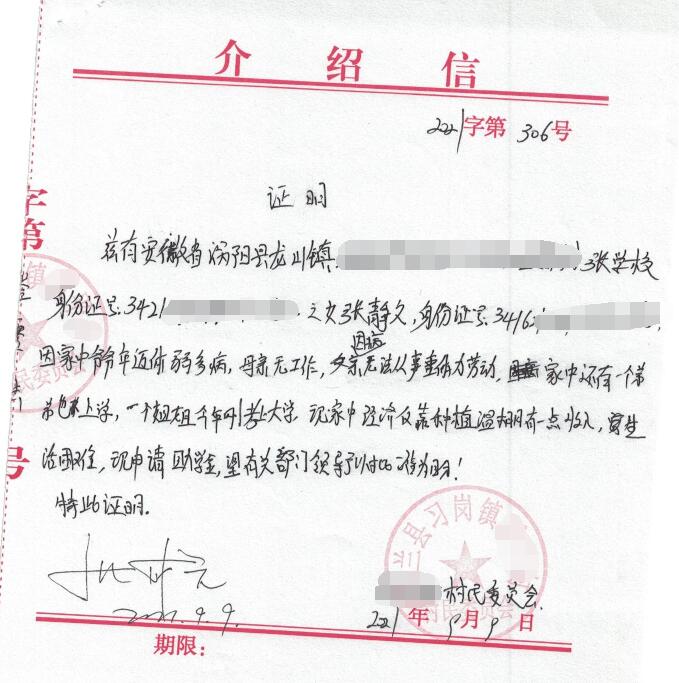 介绍信
2021字第306号
证明
兹有安徽省涡阳县龙山镇 张学校
身份证号:3421 之女张静文,身份证号:3416
因病
因家中爷爷年迈体弱多病,母亲无工作,父亲无法从事重体力劳动,家中还有一个弟
弟也在上学,一个姐姐今年刚考上大学,现家中经济仅靠种植温棚有一点收入,生
活困难,现申请助学金,望有关部门领导予以 为盼!
特此证明.
村民委员会.
2021年9月9日
2021.9.9.
期限:
字第
号
兰县习岗镇
村民委员会
镇
民委员会